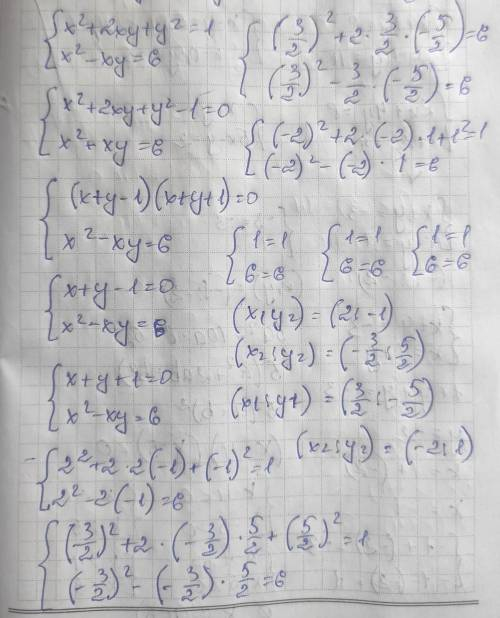 x²+2xy+y²=1
x²-xy=6
x²+2xy+y²-1=0
x²+xy=6
(x+y-1)(x+y+1)=0
x²-xy=6
x+y-1=0
x²-xy=6
x+y+1=0
x²-xy=6
2²+2·2(-1)+(-1)²=1
2²-2·(-1)=6
(-3/2)²+2·(-3/2)·5/2+(5/2)²=1
(-3/2)²-(-3/2)·5/2=6
(3/2)²+2·3/2·(-5/2)=6
(3/2)²-3/2·(-5/2)=6
(-2)²+2·(-2)·1+1²=1
(-2)²-(-2)·1=6
1=1 1=1 1=1
6=6 6=6 6=6
(x₁y₂)=(2;-1)
(x₂;y₂)=(-3/2;5/2)
(x₁;y₁)=(3/2;-5/2)
(x₂;y₂)=(-2;1)